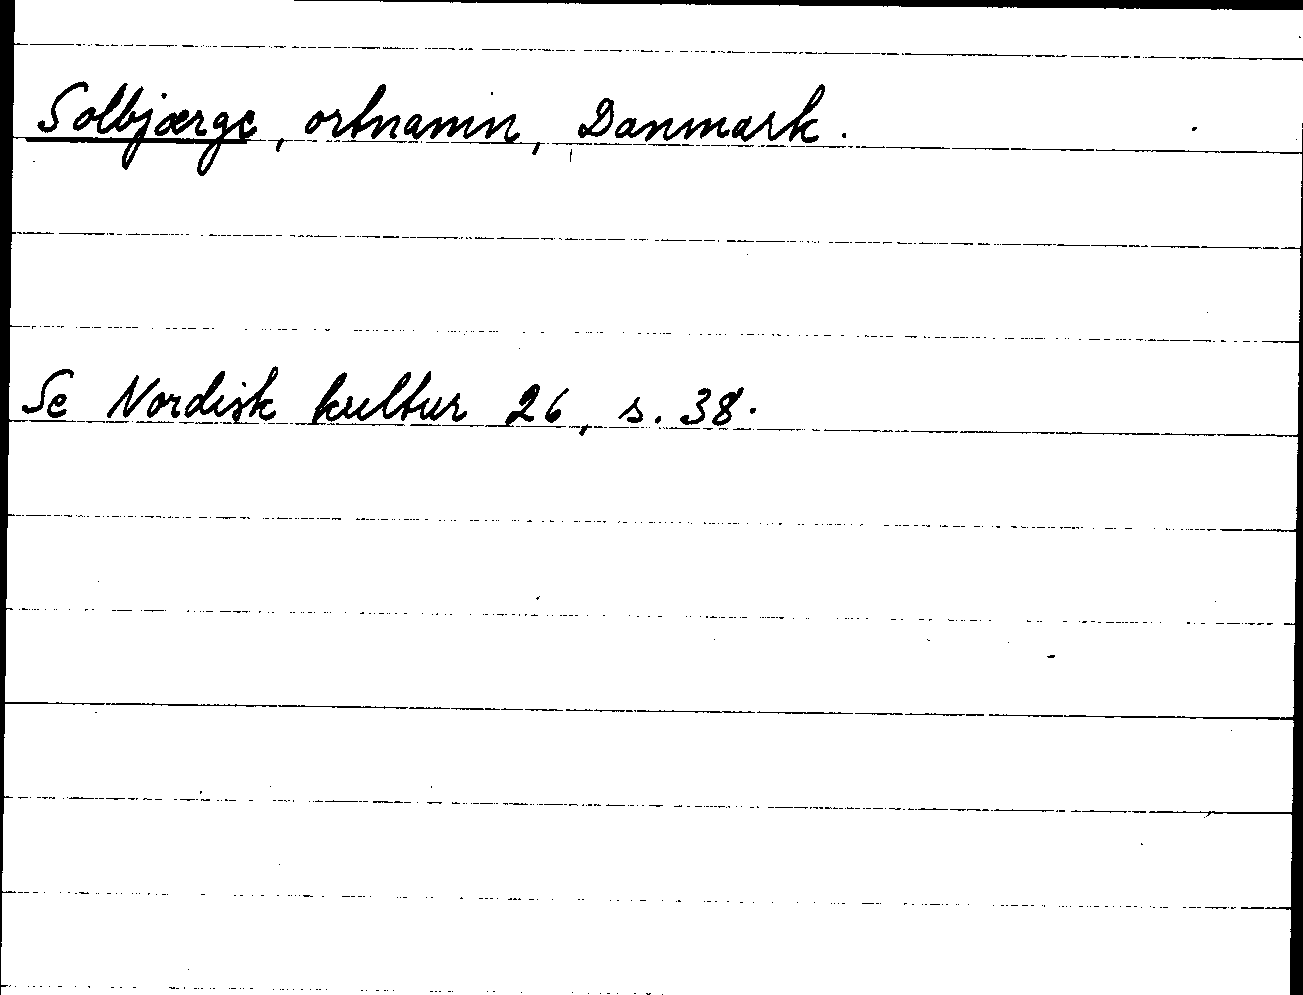 Solbjærge, ortnamn, Danmark.
Se Nordisk kultur 26, s. 38.